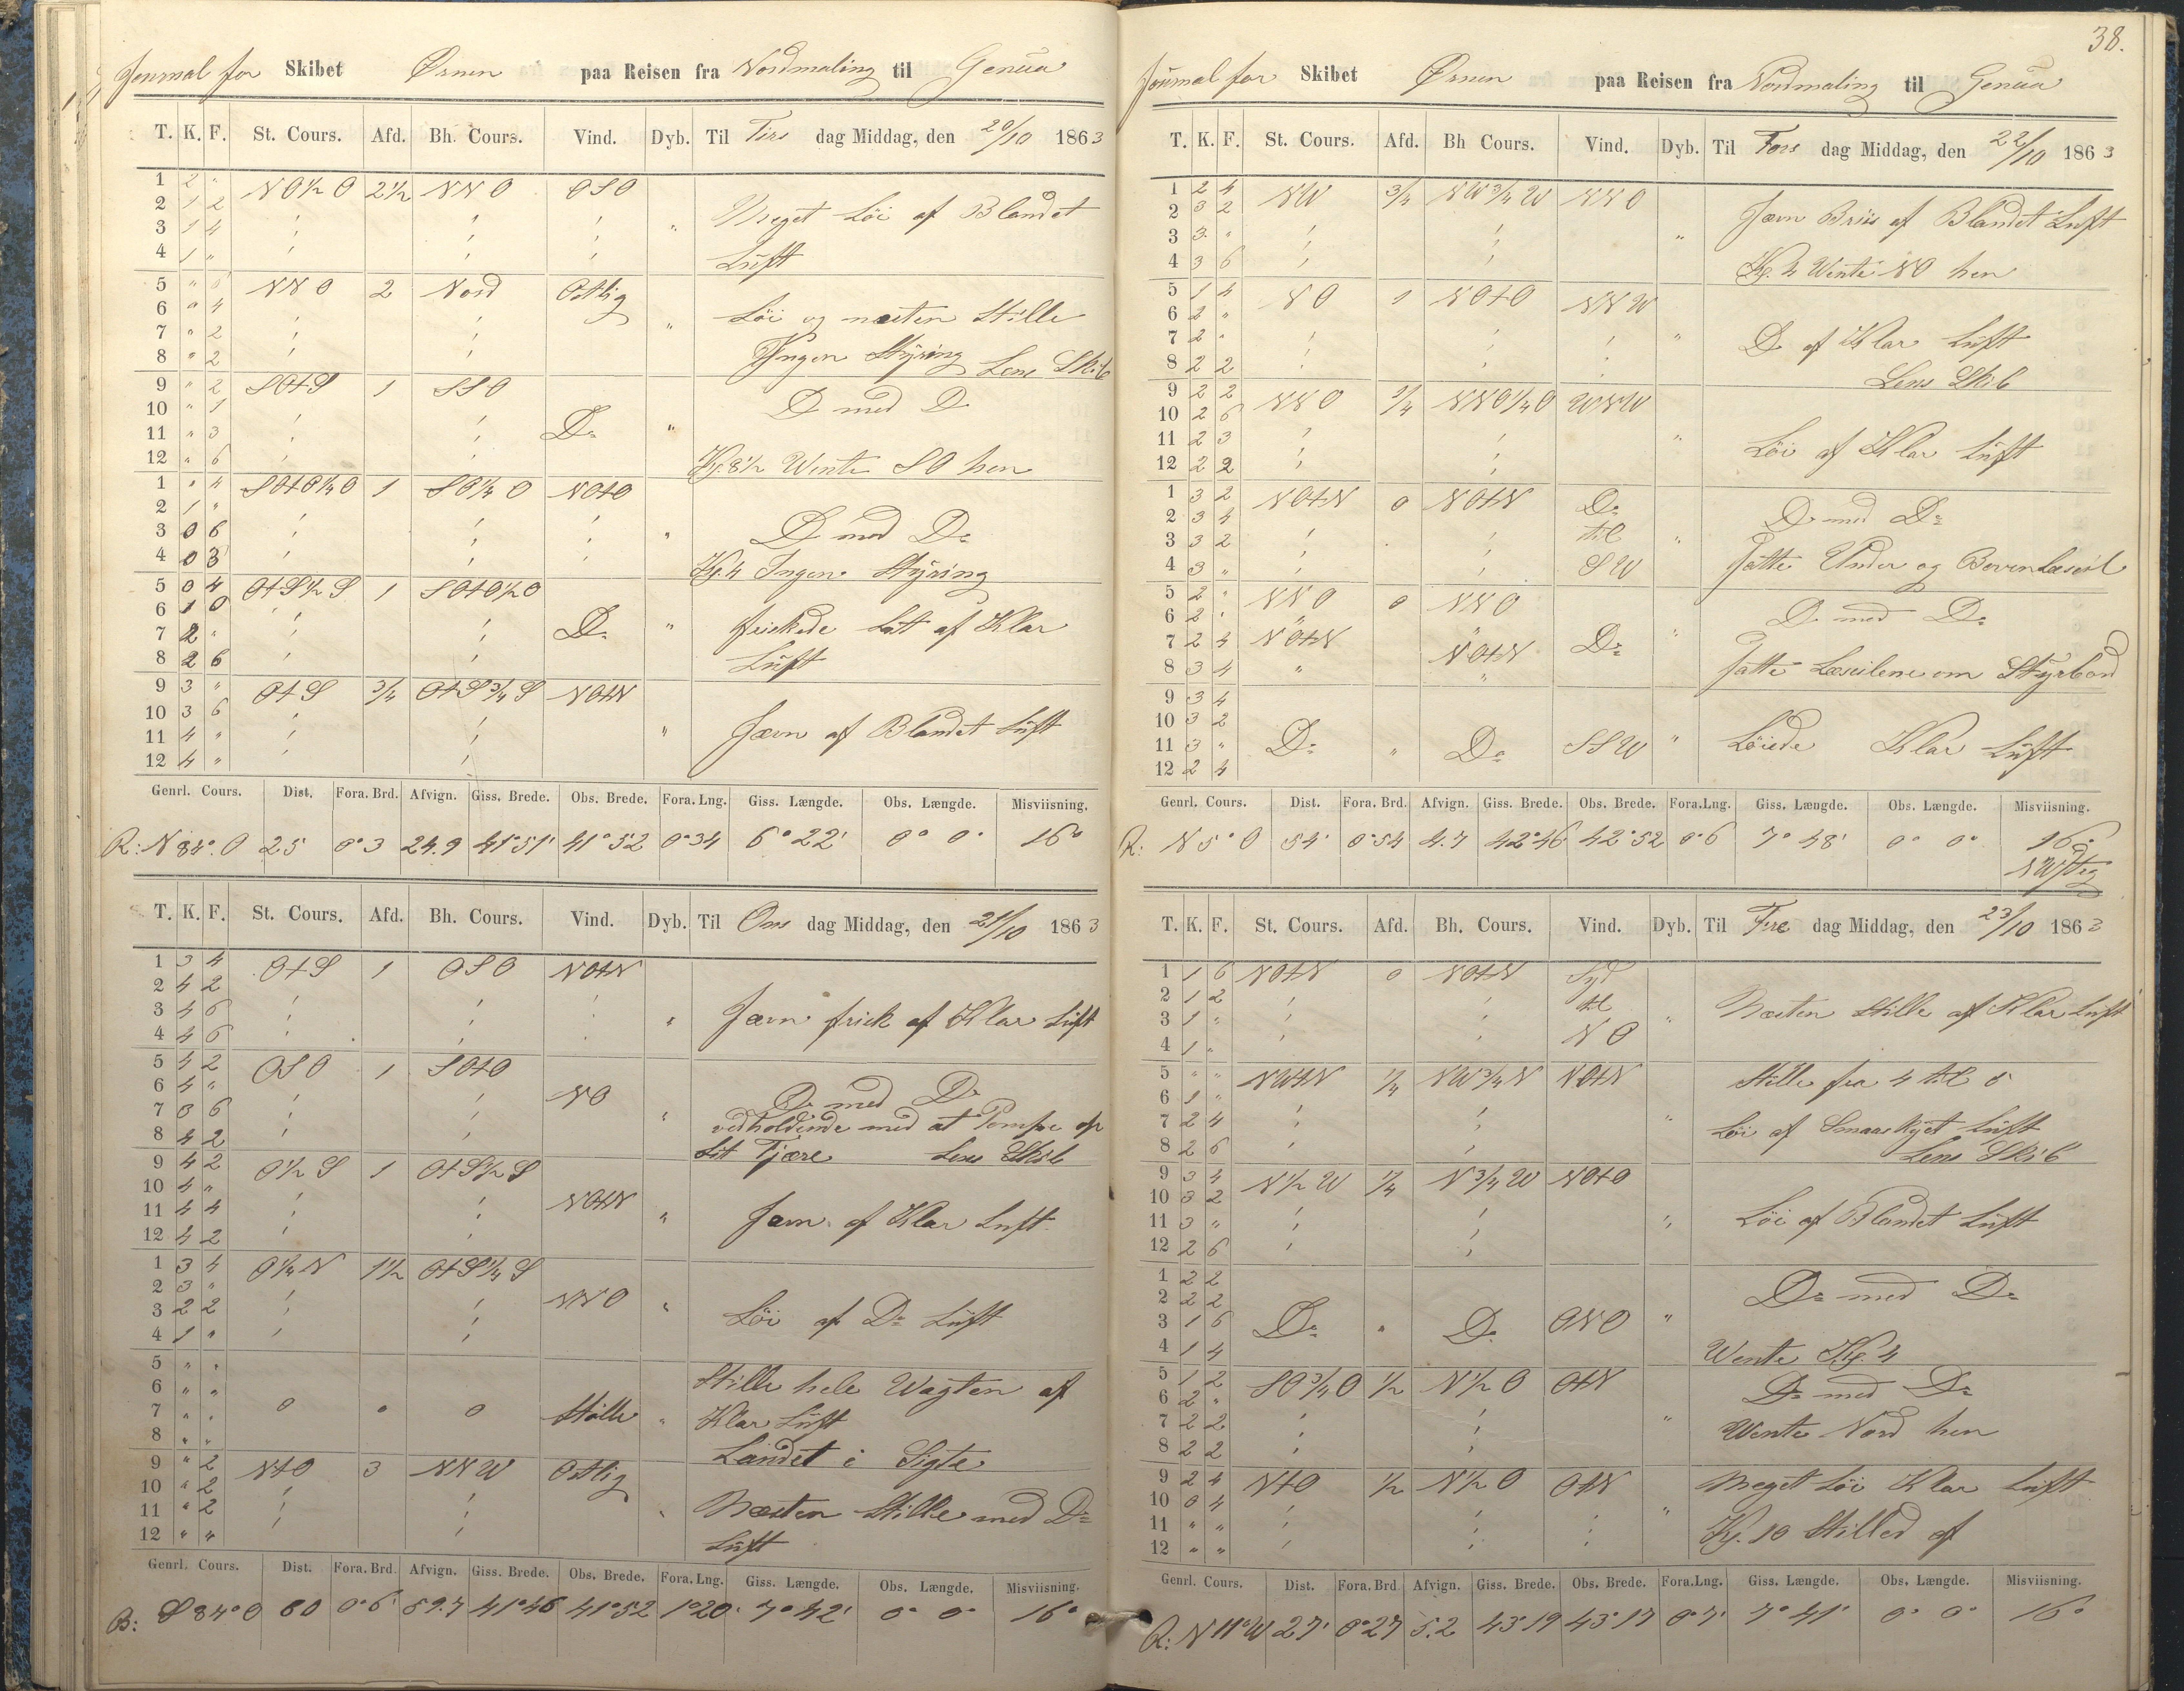 Journal for Skibet Ørnen paa Reisen fra Nordmaling til Genua
T. K. F. St. Cours. Afd. Bh. Cours. Vind. Dyb. Til Tirs dag Middag, den 20/10 1863
1 2 " NO½O 2½ NNO OSO
2 1 2 Meget Löi af Blandet
3 1 4
4 1 " Luft
5 " 6 NNO 2 Nord Ostlig
6 " 4 Löi og næsten Stille
7 " 2 Ingen Styring Lens Skib
8 " 2
9 " 2 SOtS 1 SSO
10 " 1 Do med Do
11 " 3 Do "
12 " 6 Kl. 8½ Wente SO hen
1 " 4 SOtO¼O 1 SO¼O NOtO
2 1 "
3 0 6 Do med Do
4 0 3 Kl. 4 Ingen Styring
5 0 4 OtS½S 1 SOtO½O
6 1 0 Do " friskede Lit af Klar
7 2 "
8 2 6 Luft
9 3 " OtS ¾ OtS¾S NOtN
10 3 6
11 4 " Jævn af Blandet Luft
12 4 "
Genrl. Cours. Dist. Fora. Brd. Afvign. Giss. Brede. Obs. Brede. Fora. Lng. Giss. Længde. Obs. Længde. Misviisning.
R: N 84° O 25 0°3 24.9 41°51' 41°52 0°34 6°22' 0° 0' 16°
T. K. F. St. Cours. Afd. Bh. Cours. Vind. Dyb. Til Ons dag Middag, den 21/10 1863
1 3 4 OtS 1 OSO NOtN
2 4 2
3 4 6 Jævn frisk af Klar Luft
4 4 6
5 4 2 OSO 1 SOtO
6 4 " NO Do med Do
7 3 6 vedholdende med at Pompe op
8 4 2 Lit Tjære Lens Skib
9 4 2 O½S 1 OtS½S
10 4 " NOtN
11 4 4 Jævn af Klar Luft
12 4 2
1 3 4 O¼N 1½ OtS¼S
2 3 " NNO
3 2 2 Löi af Do Luft
4 1 "
5 " " Stille hele Wagten af
6 " "
7 " " 0 " 0 Stille " Klar Luft
8 " " Landet i Sigte
9 " 2 NtO 3 NNW Ostlig
10 " 2
11 " 2 Næsten Stille med Do
12 " " Luft
Genrl. Cours. Dist. Fora. Brd. Afvign. Giss. Brede. Obs. Brede. Fora. Lng. Giss. Længde. Obs. Længde. Misviisning.
R: S 84° O 60 0°6' 59.7 41°46 41°52 1°20' 7°42' 0° 0' 16°
38.
Journal for Skibet Ørnen paa Reisen fra Nordmaling til Genua
T. K. F. St. Cours. Afd. Bh Cours. Vind. Dyb. Til Tors dag Middag, den 22/10 1863
1 2 4 NW ¾ NW¾W NNO
2 3 2 Jævn Briis af Blandet Luft
3 3 "
4 3 6 Kl. 4 Wente NO hen
5 1 4 NO 1 NOtO NNW
6 2 "
7 2 " Do af Klar Luft
8 2 2 Lens Skib
9 2 2 NNO ¼ NNO¼O WNW
10 2 6
11 2 3 Löi af Klar Luft
12 2 2
1 3 2 NOtN 0 NOtN Do
2 3 4 til Do med Do
3 3 2
4 3 " SW Satte Under og Bovenlæseil
5 2 " NNO 0 NNO
6 2 " Do med Do
7 2 4 NOtN NOtN Do
8 3 4 " " Satte Læseilene om Styrbord
9 3 4
10 3 2
11 3 " Do " Do SSW " Löiede Klar Luft
12 2 4
Genrl. Cours. Dist. Fora. Brd. Afvign. Giss. Brede. Obs. Brede. Fora.Lng. Giss. Længde. Obs. Længde. Misviisning.
R: N 5° O 54' 0°54 4.7 42°46 42°52 0°6 7°48' 0° 0' 16°
NWstig
T. K. F. St. Cours. Afd. Bh. Cours. Vind. Dyb. Til Fre dag Middag, den 23/10 1863
1 1 6 NOtN 0 NOtN Syd
2 1 2 til Næsten Stille af Klar Luft
3 1 "
4 1 " NO
5 " " NWtN ¼ NW¾N NOtN Stille fra 4 til 5
6 1 "
7 2 4 Löi af Smaaskyet Luft
8 2 6 Lens Skib
9 3 4 N½W ¼ N¾W NOtO
10 3 2
11 3 " Löi af Blandet Luft
12 2 6
1 2 2
2 2 2 Do med Do
3 1 6 Do " Do ONO "
4 1 4 Wente Kl. 4
5 1 2 SO¾O ½ N½O OtN Do med Do
6 2 "
7 2 2 Wente Nord hen
8 2 2
9 2 4 NtO ½ N½O OtN Meget Löi Klar Luft
10 0 4
11 " " Kl. 10 Stilled af
12 " "
Genrl. Cours. Dist. Fora. Brd. Afvign. Giss. Brede. Obs. Brede. Fora.Lng. Giss. Længde. Obs. Længde. Misviisning.
R: N 11° W 27' 0°27 5.2 43°19 43°17 0°7' 7°41' 0° 0' 16°